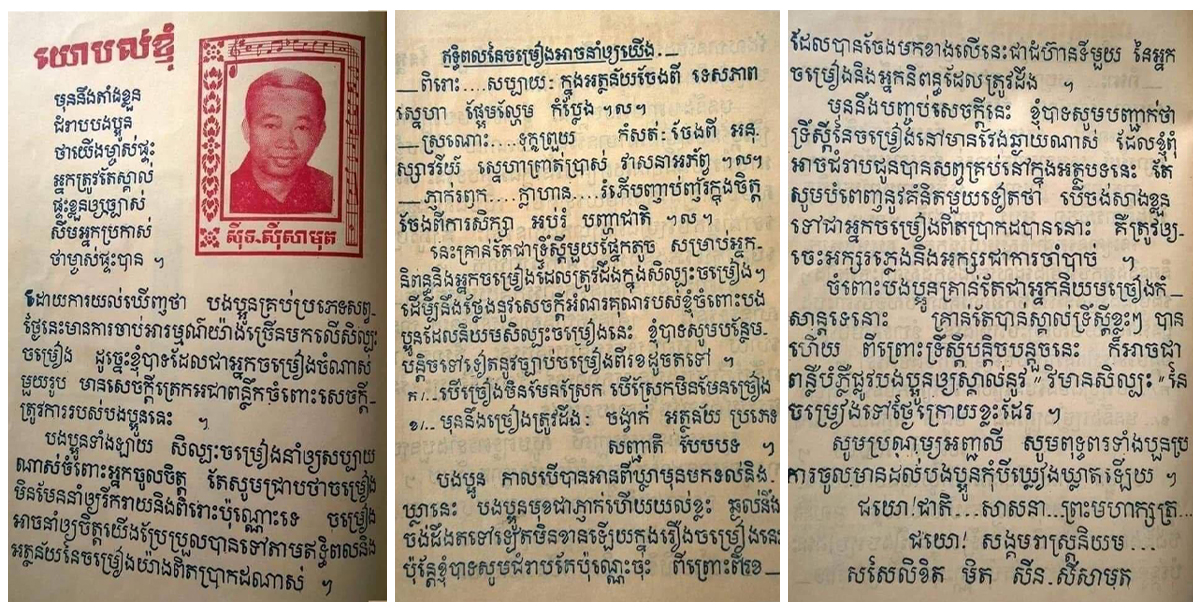 យោបល់ខ្ញុំ
មុននឹងតាំងខ្លួន
ជំរាបបងប្អូន
ថាយើងម្ចាស់ផ្ទះ
អ្នកត្រូវតែស្គាល់
ផ្ទះខ្លួនឲ្យច្បាស់
សឹមអ្នកប្រកាស់
ថាម្ចាស់ផ្ទះបាន ។
ស៊ីន.ស៊ីសាមុត
ដោយការយល់ឃើញថា បងប្អូនគ្រប់ប្រភេទសព្វ-
ថ្ងៃនេះមានការចាប់អារម្មណ៍យ៉ាងច្រើនមកលើសិល្បះ
ចម្រៀង ដូច្នេះខ្ញុំបាទដែលជាអ្នកចម្រៀងចំណាស់
មួយរូប មានសេចក្តីត្រេកអរជាពន្លឹកចំពោះសេចក្តី-
ត្រូវការរបស់បងប្អូននេះ ។
បងប្អូនទាំងឡាយ សិល្បះចម្រៀងនាំឲ្យសប្បាយ
ណាស់ចំពោះអ្នកចូលចិត្ត តែសូមជ្រាបថាចម្រៀង
មិនមែននាំឲ្យរីករាយនិងពិរោះប៉ុណ្ណោះទេ ចម្រៀង
អាចនាំឲ្យចិត្តយើងប្រែប្រួលបានទៅតាមឥទ្ធិពលនិង
អត្ថន័យនៃចម្រៀងយ៉ាងពិតប្រាកដណាស់ ។
ឥទ្ធិពលនៃចម្រៀងអាចនាំឲ្យយើង:_
_ពិរោះ....សប្បាយ: ក្នុងអត្ថន័យចែងពី ទេសភាព
ស្នេហា ផ្អែមល្ហែម កំប្លែង ។ល។
_ស្រណោះ....ទុក្ខព្រួយ កំសត់: ចែងពី អនុ-
ស្សាវរីយ៍ ស្នេហាព្រាត់ប្រាស់ វាសនាអភ័ព្វ ។ល។
_ភ្ញាក់រឭក....ក្លាហាន....រំភើបញាប់ញ័រក្នុងចិត្ត
ចែងពីការសិក្សា អប់រំ បញ្ហាជាតិ ។ល។
នេះគ្រាន់តែជាទ្រឹស្តីមួយផ្នែកតូច សម្រាប់អ្នក-
និពន្ធនិងអ្នកចម្រៀងដែលត្រូវដឹងក្នុងសិល្បះចម្រៀង។
ដើម្បីនឹងថ្លែងនូវសេចក្តីអំណរគុណរបស់ខ្ញុំចំពោះបង
ប្អូនដែលនិយមសិល្បះចម្រៀងនេះ ខ្ញុំបាទសូមបន្ថែម-
បន្តិចទៅទៀតនូវច្បាប់ចម្រៀងពីរខដូចតទៅ ។
ក/..បើច្រៀងមិនមែនស្រែក បើស្រែកមិនមែនច្រៀង
ខ/.. មុននឹងច្រៀងត្រូវដឹង: ចង្វាក់ អត្ថន័យ ប្រភេទ
សញ្ជាតិ បែបបទ ។
បងប្អូន កាលបើបានអានពីឃ្លាមុនមកទល់និង-
ឃ្លានេះ បងប្អូនមុខជាភ្ញាក់ហើយយល់ខ្លះ ឆ្ងល់នឹង
ចង់ដឹងតទៅទៀតមិនខានឡើយក្នុងរឿងចម្រៀងនេះ
ប៉ុន្តែខ្ញុំបាទសូមជំរាបតែប៉ុណ្ណេះចុះ ពីព្រោះពីរខ_
ដែលបានចែងមកខាងលើនេះជាជំហ៊ានទីមួយ នៃអ្នក
ចម្រៀងនិងអ្នកនិពន្ធដែលត្រូវដឹង ។
មុននឹងបញ្ចប់សេចក្តីនេះ ខ្ញុំបាទសូមបញ្ជាក់ថា
ទ្រឹស្តីនៃចម្រៀងនៅមានវែងឆ្ងាយណាស់ ដែលខ្ញុំពុំ
អាចជំរាបជូនបានសព្វគ្រប់នៅក្នុងអត្ថបទនេះ តែ
សូមបំពេញនូវគំនិតមួយទៀតថា បើចង់សាងខ្លួន
ទៅជាអ្នកចម្រៀងពិតប្រាកដបាននោះ គឺត្រូវឲ្យ-
ចេះអក្សរភ្លេងនិងអក្សរជាការចាំបាច់ ។
ចំពោះបងប្អូនគ្រាន់តែជាអ្នកនិយមច្រៀងកំ-
សាន្តទេនោះ គ្រាន់តែបានស្គាល់ទ្រឹស្តីខ្លះៗ បាន
ហើយ ពីព្រោះទ្រឹស្តីបន្តិចបន្តួចនេះ ក៏អាចជា
ពន្លឺបំភ្លឺផ្លូវបងប្អូនឲ្យស្គាល់នូវ " វិមានសិល្បះ " នៃ
ចម្រៀងទៅថ្ងៃក្រោយខ្លះដែរ ។
សូមប្រណម្យអញ្ជលី សូមពុទ្ធពរទាំងបួនប្រ
ការចូលមានដល់បងប្អូនកុំបីឃ្លៀងឃ្លាតឡើយ ។
ជយោ!ជាតិ....សាសនា...ព្រះមហាក្សត្រ...
ជយោ! សង្គមរាស្ត្រនិយម...
សសៃលិខិត មិត ស៊ីន.ស៊ីសាមុត